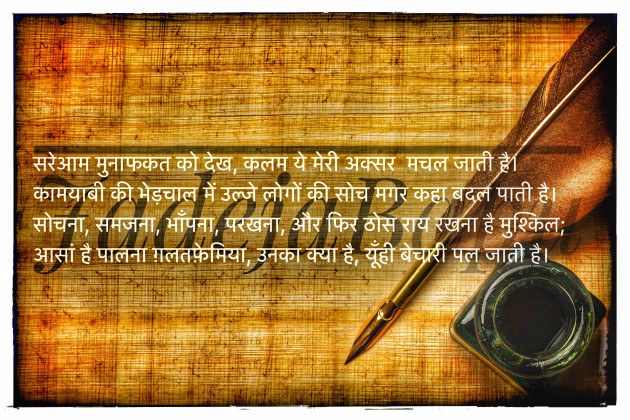 सरेआम मुनाफकत को देख, कलम ये मेरी अक्सर  मचल जाती है।
कामयाबी की भेड़चाल में उल्जे लोगों की सोच मगर कहा बदल पाती है।
सोचना, समजना, भाँपना, परखना, और फिर ठोस राय रखना है मुश्किल;
आसां है पालना ग़लतफ़ेमिया, उनका क्या है, यूँही बेचारी पल जाती है।